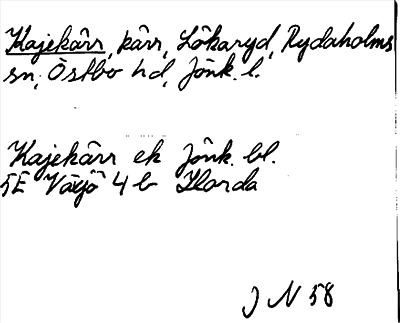 Kajekärr, kärr, Lökaryd, Rydaholms
sn, Östbo hd, Jönk. l.
Kajekärr ek Jönk. bl.
5E Växjö 4b Horda
J N 58